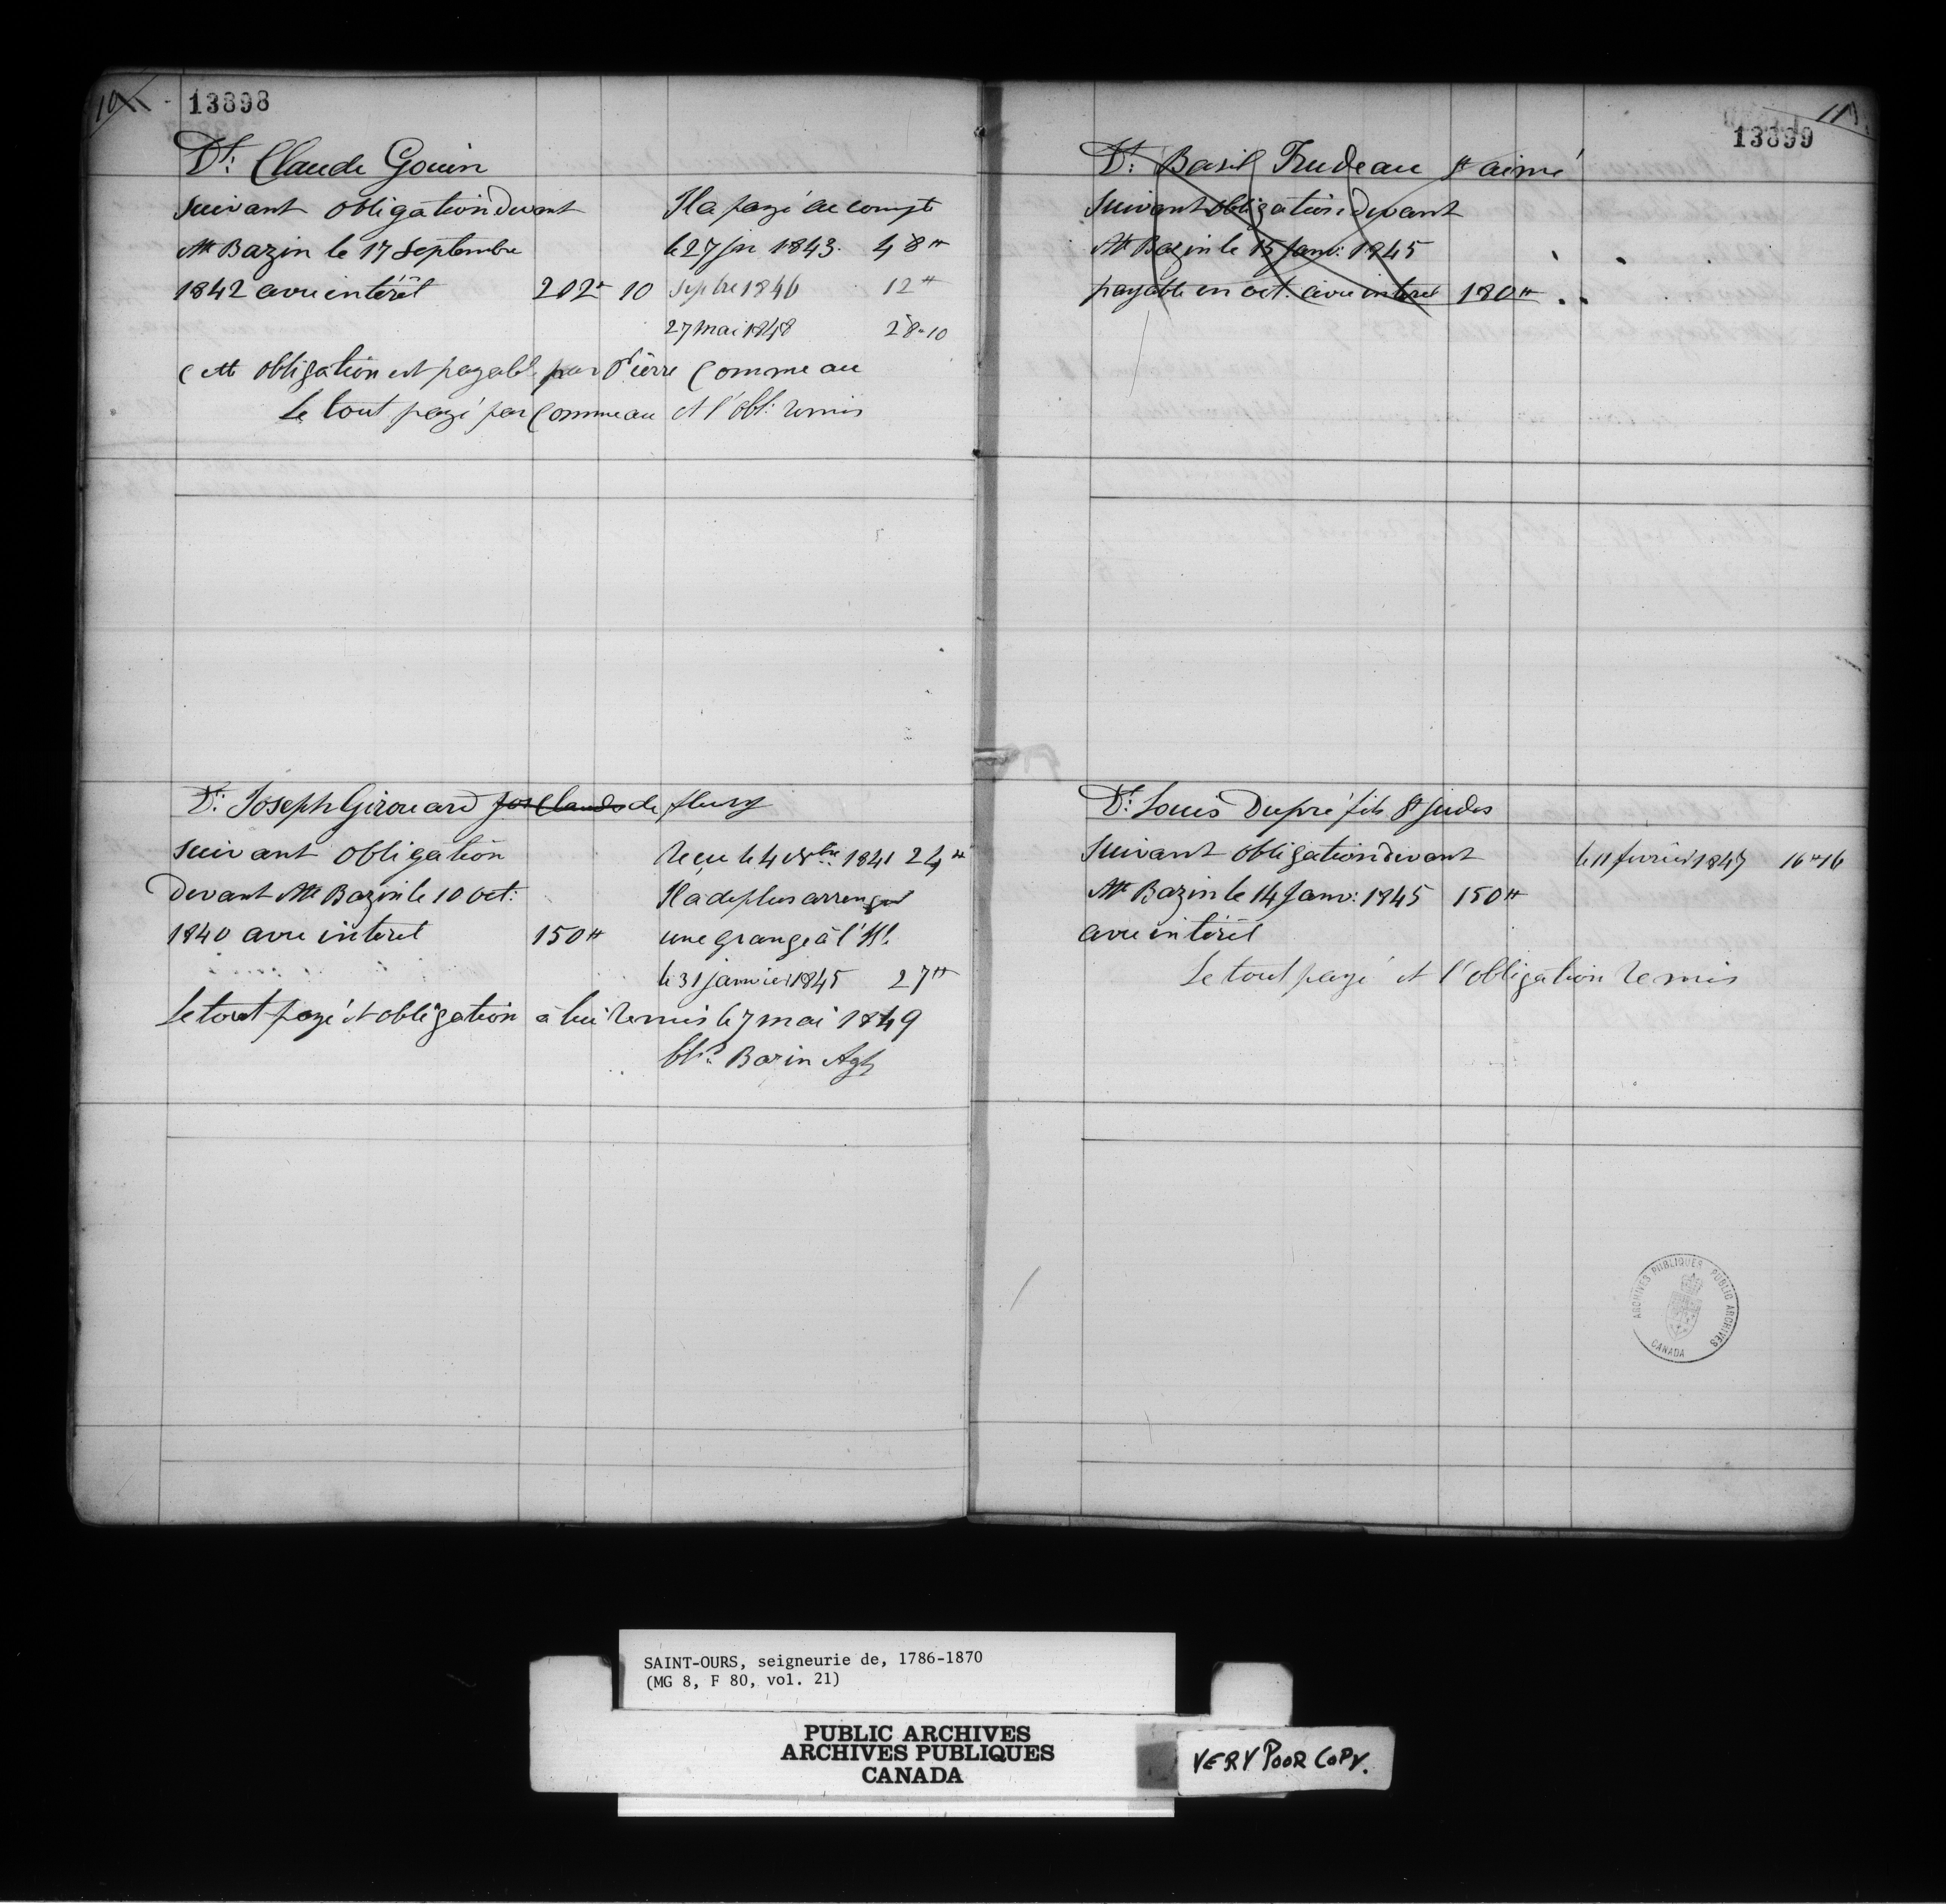 10
13898
Dt: Claude Gouin
Suivant obligation devant
Mtr Bazin le 17 Septembre
1842 avec intérêt 202# 10
Il a payé acompte
le 27 Jr 1843. 48#
Septbre 1846 12#
27 mai 1848 28-10
Cette obligation est payable par Pierre Commeau
Le tout payé par Commeau et l'obl: remis
Dt: Joseph Girouard Jos Claude de fleury
Suivant obligation
Devant Mtr Bazin le 10 oct:
1840 avec intéret 150#
Recu le 4 Xbre 1841 24#
Il a de plus arrengé
une grange à l'Hl.
le 31 janvier 1845 27#
Le tout payé et obligation à lui remis le 7 mai 1849
Bazin Agt
11
13899
Dt: Basil Trudeau St aimé
Suivant obligation devant
Mtr Bazin le 15 Janv: 1845
payable en oct: avec intéret 180#
Dt: Louis Dupré fils St Judes
Suivant obligation devant
Mtr Bazin le 14 Janv: 1845 150#
avec intérêt
le 11 fevrier 1847 16#16
Le tout payé et l'obligation remis
ARCHIVES PUBLIQUES PUBLIC ARCHIVES
CANADA
SAINT-OURS, seigneurie de, 1786-1870
(MG 8, F 80, vol. 21)
PUBLIC ARCHIVES
ARCHIVES PUBLIQUES
CANADA
VERY POOR COPY.